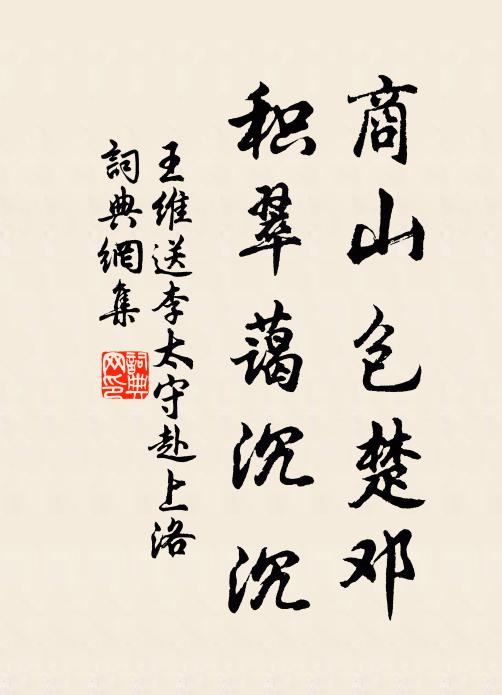 商山包楚邓
积翠藹沉沉
王维送李太守赴上洛
詞典網集
詞典网印